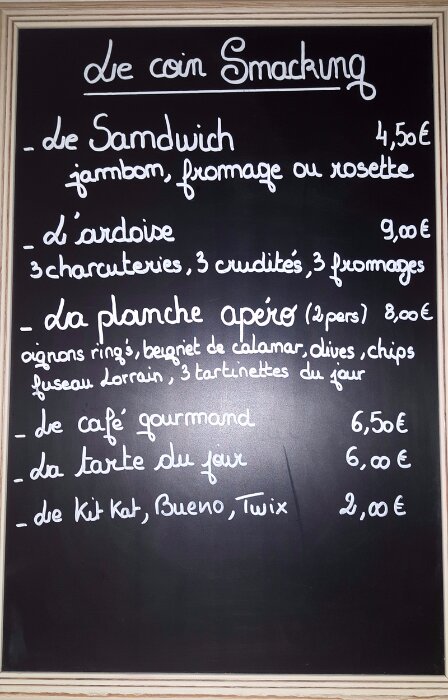 Le coin Smacking
- Le Samdwich 4,50€
jambom, fromage ou rosette
- L'ardoise 9,00€
3 charcuteries, 3 crudités, 3 fromages
- La planche apéro (2 pers) 8,00€
oignons ring's, beignet de calamar, olives, chips
fuseau Lorrain, 3 tartinettes du jour
- Le café gourmand 6,50€
- La tarte du jour 6,00€
- Le Kit Kat, Bueno, Twix 2,00€